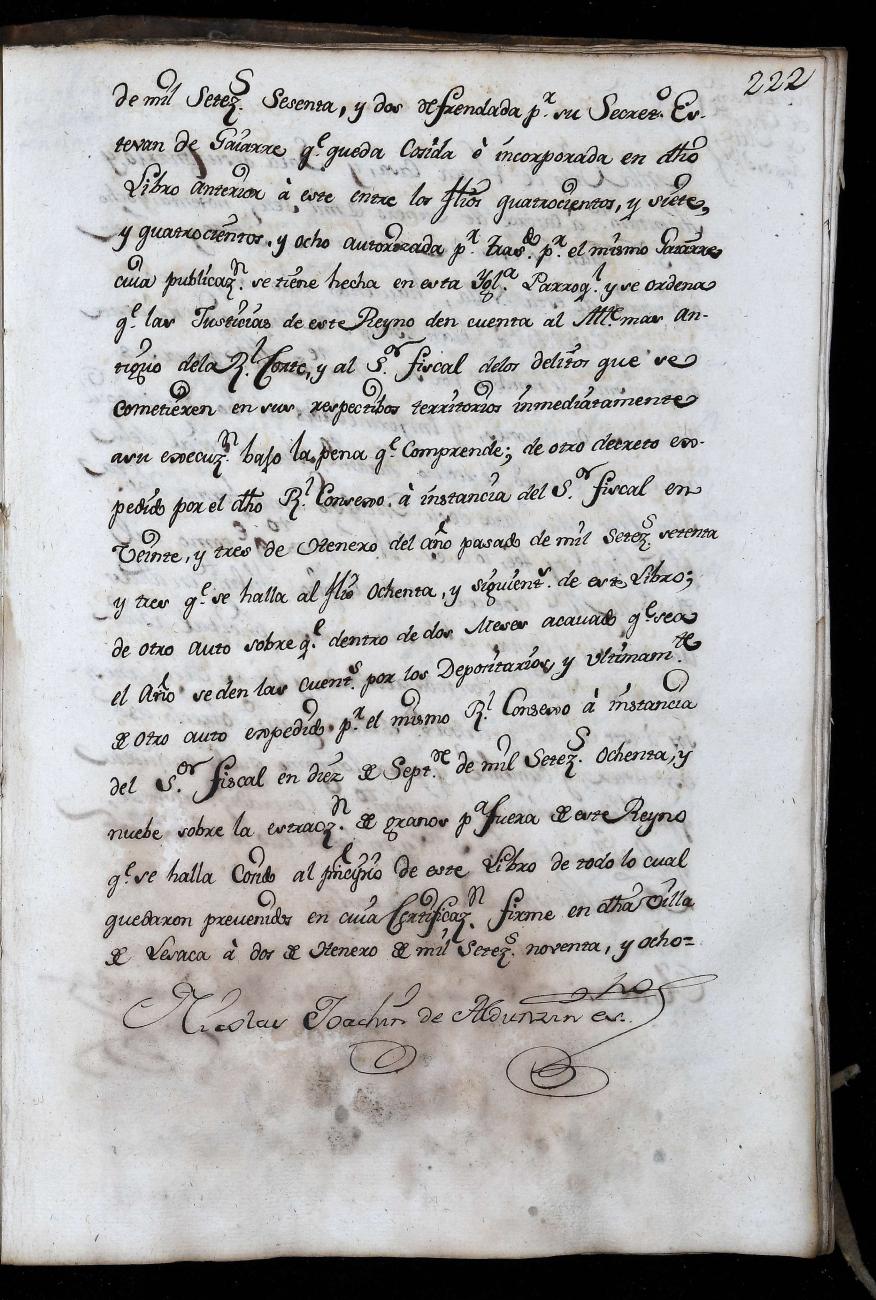 222
de mil Setez.s Sesenta, y dos refrendada p.r su Secret.o Es-
tevan de Gaiarre q.e queda Cosida ò incorporada en dho
Libro anterior à este entre los flios quatrocientos, y siete,
y quatrocientos, y ocho autorizada p.r tras.do p.r el mismo Gaiarre
cuia publicaz.n se tiene hecha en esta Ygl.a Parroq.l y se ordena
q.e las Justicias de este Reyno den cuenta al Alc.e mas an-
tiguo dela R.l Corte, y al S.or fiscal delos delitos que se
cometieren en sus respectibos territorios inmediatamente
asu execuz.n bajo la pena q.e Comprende; de otro decreto ex-
pedido por el dho R.l Consexo à instancia del S.or fiscal en
Veinte, y tres de Henero del año pasado de mil Setez.s setenta
y tres q.e se halla al flio ochenta, y siguient.s de este Libro;
de otro auto sobre q.e dentro de dos Meses acavado q.e sea
el Año se den las cuent.s por los Depositarios, y Ultimam.te
de otro auto expedido p.r el mismo R.l Consexo à instancia
del S.or fiscal en diez de Sept.re de mil Setez.s ochenta, y
nuebe sobre la estracz.n de granos p.a fuera de este Reyno
q.e se halla Condo al principio de este Libro de todo lo cual
quedaron prevenidos en cuia Certificaz.n firme en dha Villa
de Lesaca à dos de Henero de mil Setez.s noventa, y ocho=
Nicolas Joachin de Aldunzin es.no